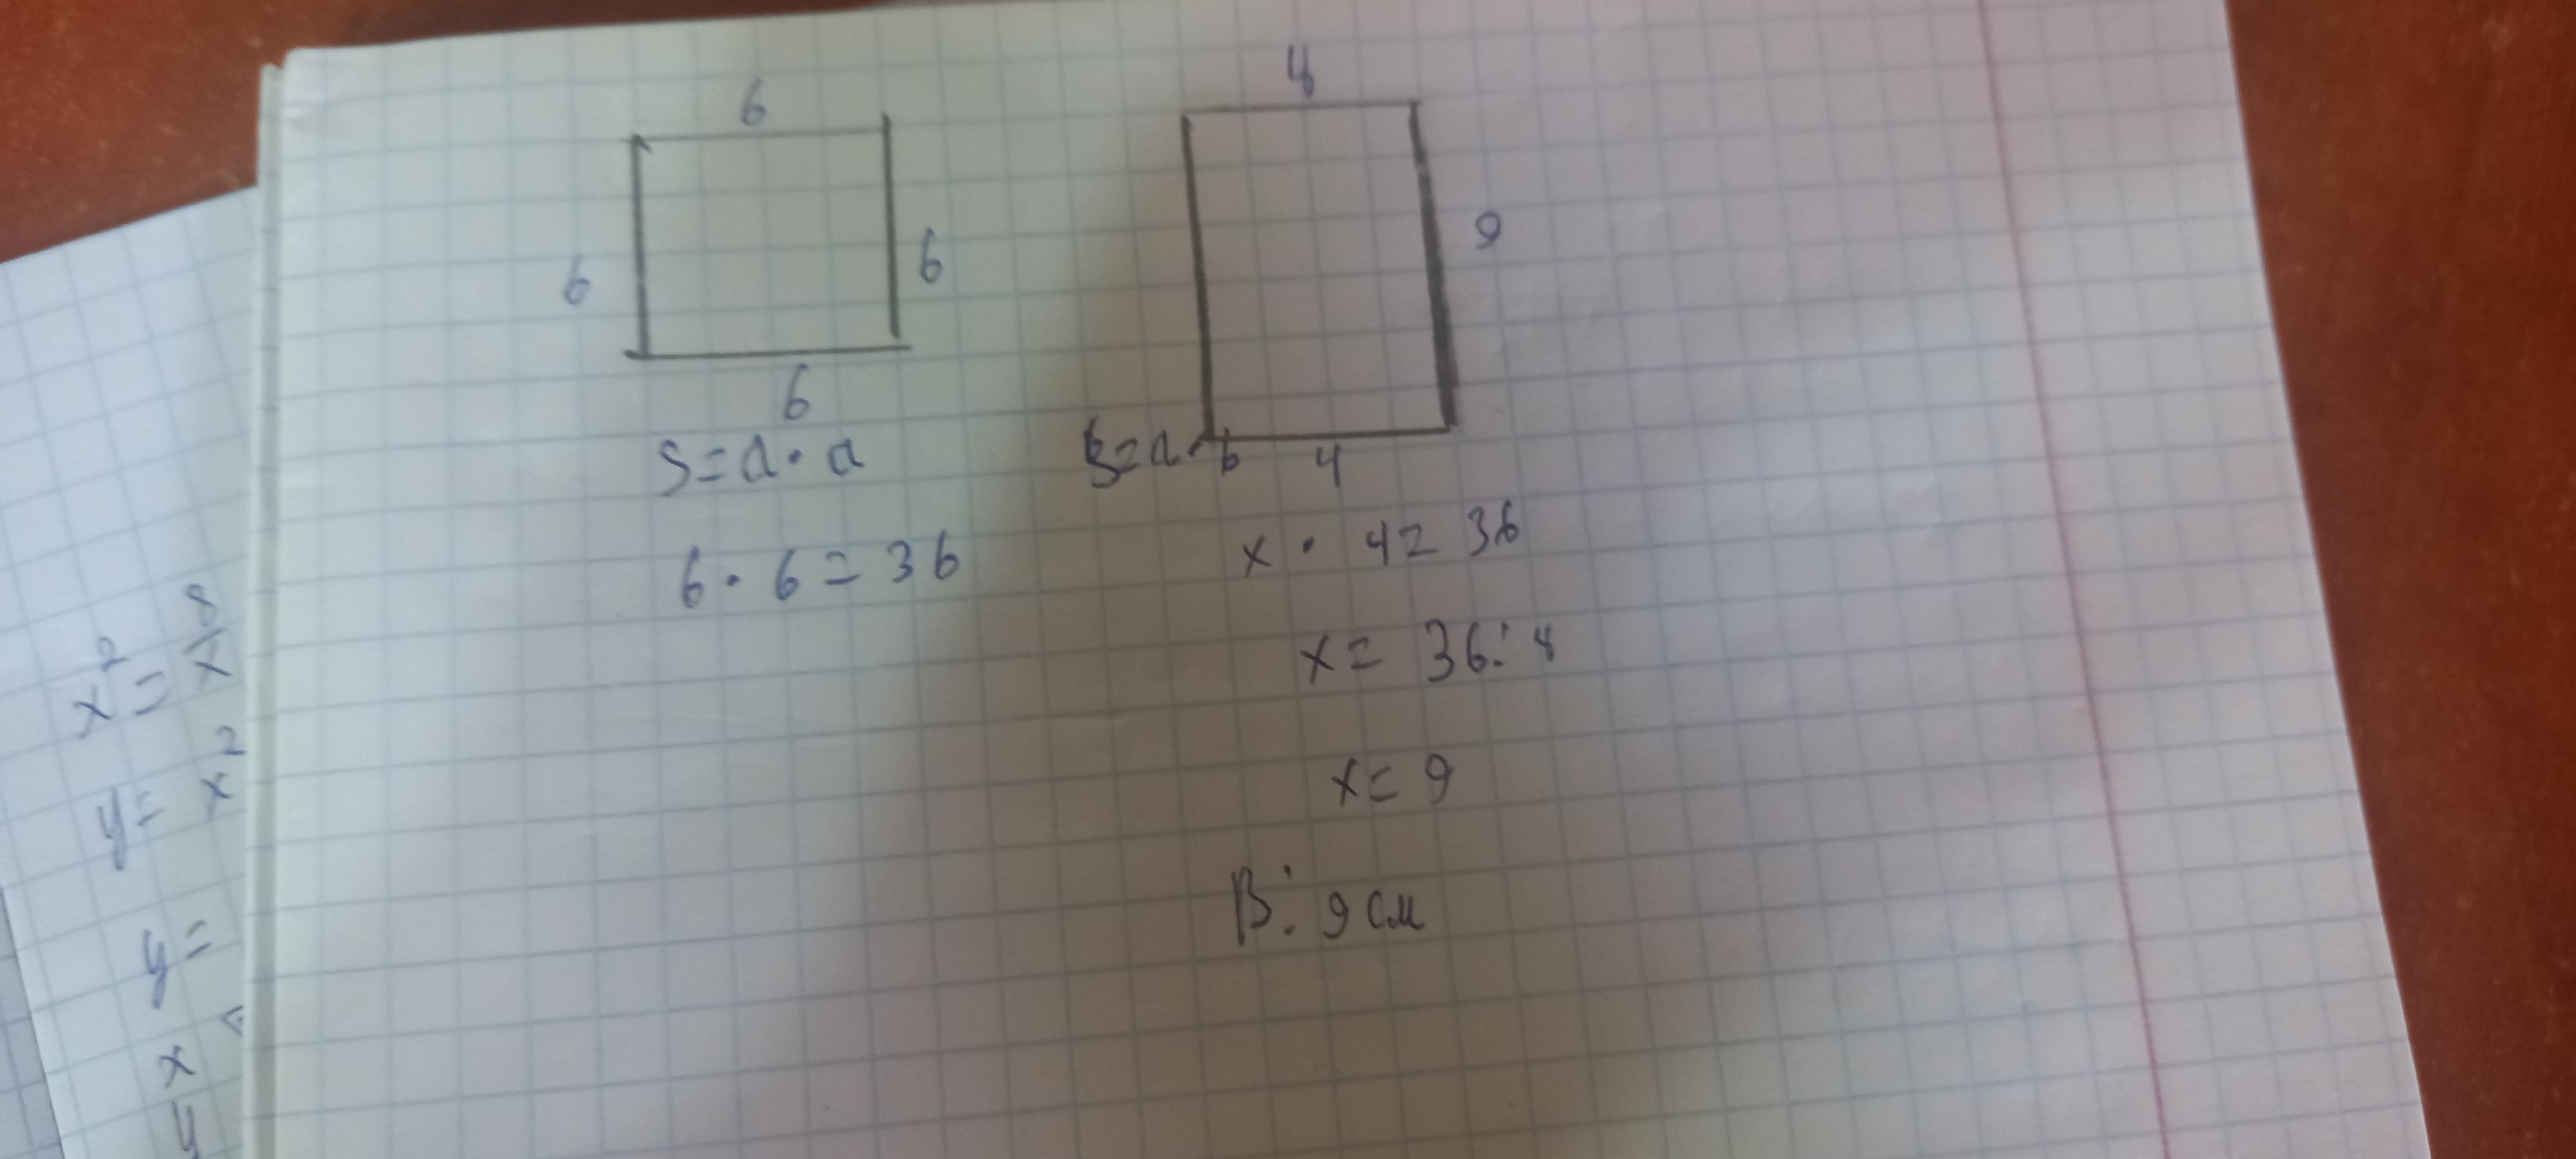 6
6
6
6
S=a·a
6·6=36
4
9
S=a·b
4
x·4=36
x=36:4
x=9
В: 9 см
x²=8/x
y=x²
y=
x
y